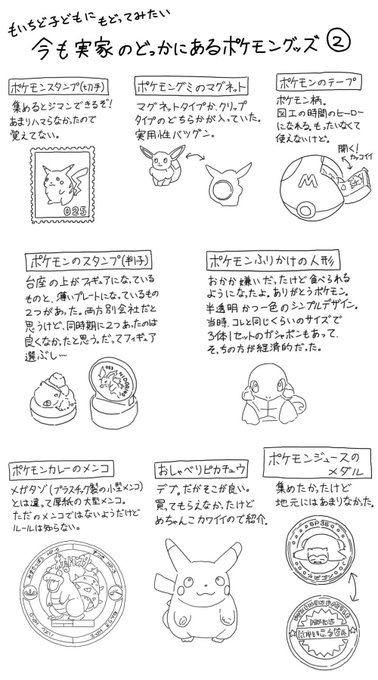 もいちど子どもに もどってみたい
今も実家のどっかにあるポケモングッズ ②
ポケモンスタンプ(切手)
集めるとジマンできるぞ!
あまりハマらなかったので
覚えてない。
025
ポケモングミのマグネット
マグネットタイプか、クリップ
タイプのどちらかが入っていた。
実用性バツグン。
ポケモンのテープ
ポケモン柄。
図工の時間のヒーロー
になれる。もったいなくて
使えないけど。
開く!
カッコイイ
M
ポケモンのスタンプ(判子)
台座の上がフィギュアになっている
ものと、薄いプレートになっているもの
2つがあった。両方別会社だと
思うけど、同時期に2つあったのは
良くなかったと思う。だってフィギュア
選ぶし…
ポケモンふりかけの人形
おかか嫌いだったけど食べられる
ようになったよ。ありがとうポケモン。
半透明かつ一色のシンプルデザイン。
当時、コレと同じくらいのサイズで
3体1セットのガシャポンもあって、
そっちの方が経済的だった。
ポケモンカレーのメンコ
メガタゾ(プラスチック製の小型メンコ)
とは違って厚紙の大型メンコ。
ただのメンコではないようだけど
ルールは知らない。
おしゃべりピカチュウ
デブ。だがそこが良い。
買ってもらえなかったけど
めちゃんこカワイイので紹介。
ポケモンジュースの
メダル
集めたかったけど
地元にはあまりなかった。